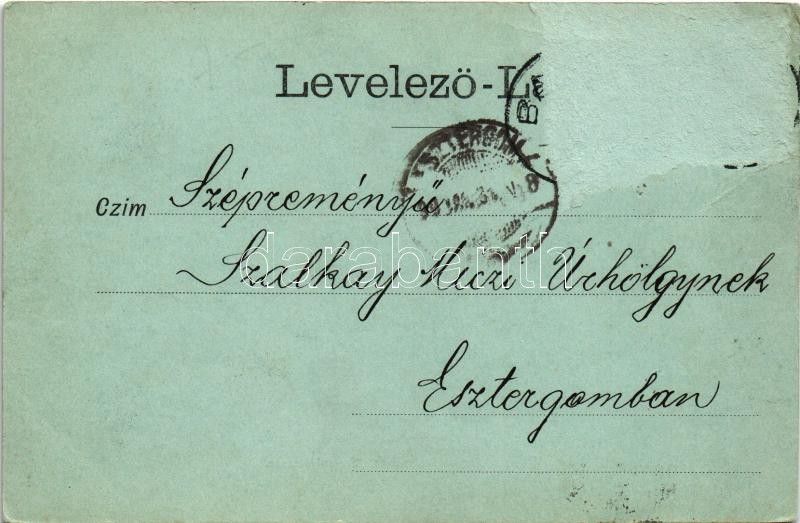 Levelező-L
Czim Szépreményű
Szalkay Muczi Úrhölgynek
Esztergomban
ESZTERGOM
darabanth